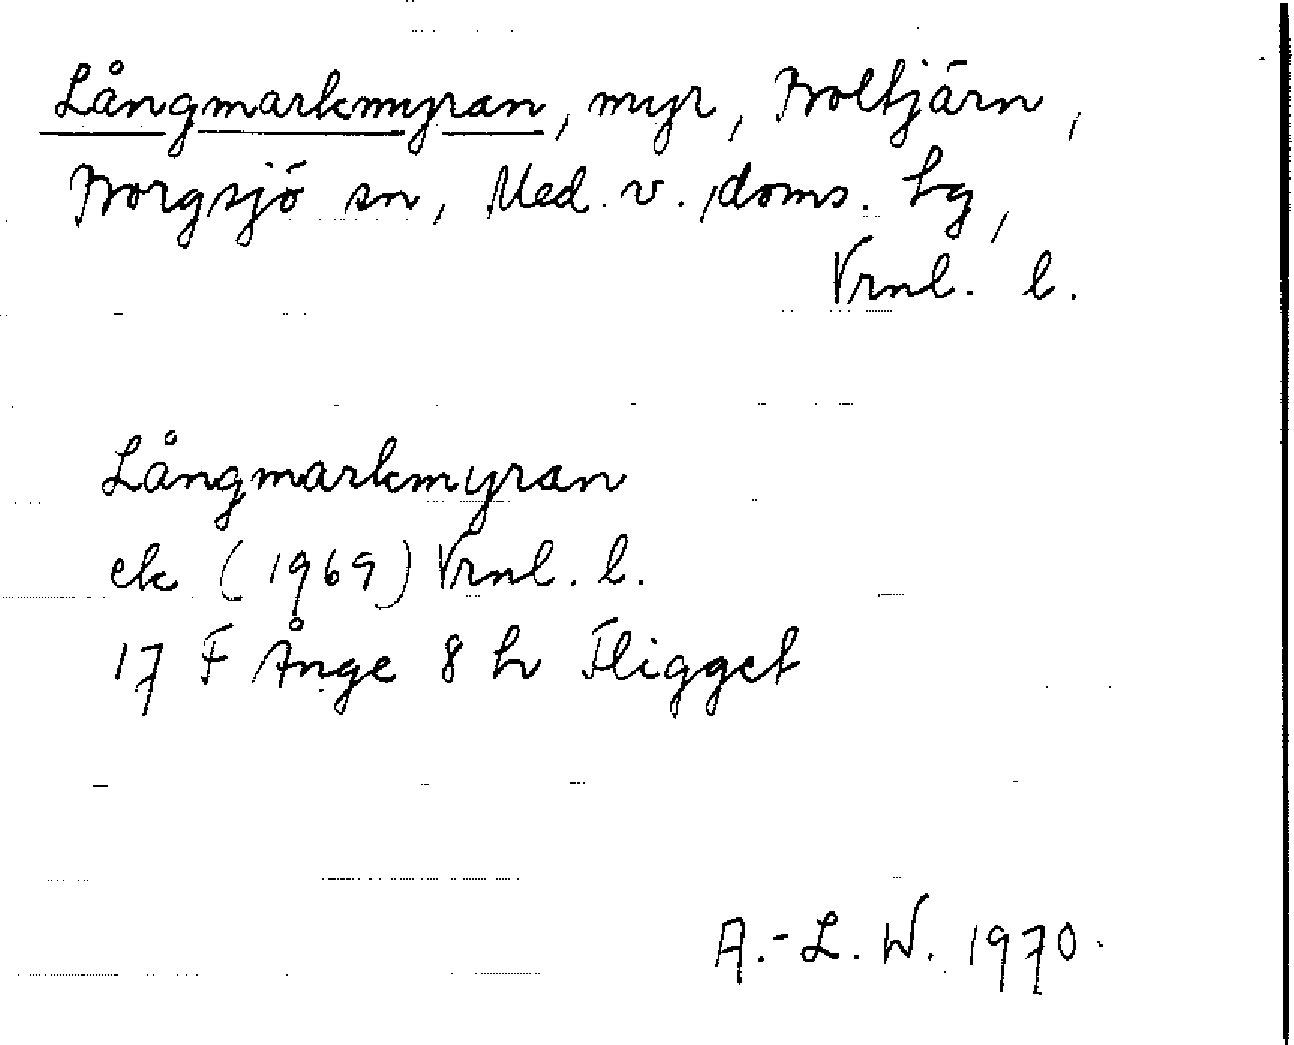 Långmarkmyran, myr, Boltjärn,
Borgsjö sn, Med. v. doms. hg,
Vrnl. l.
Långmarkmyran
ek (1969) Vrnl. l.
17 F Ånge 8 h Fligget
A.-L. W. 1970.